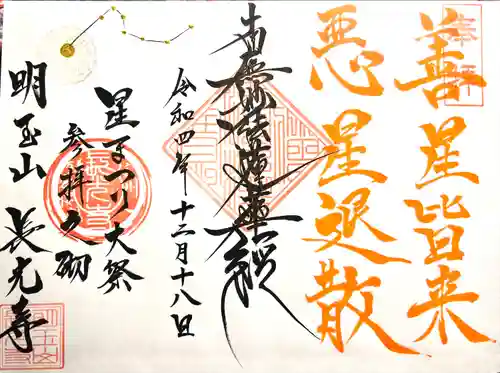 奉拝
善星皆来
悪星退散
南無妙法蓮華経
令和四年十二月十八日
星まつり大祭
参拝之砌
明玉山 長光寺